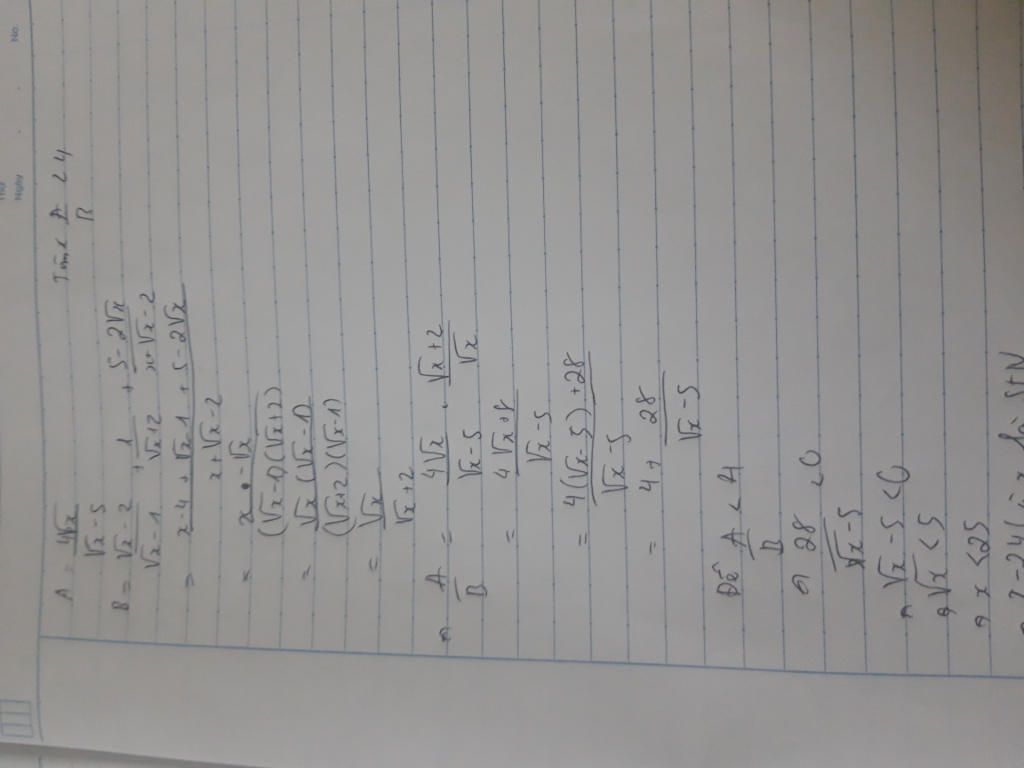 No
Ngày
A = 4√x / √x-5 Tìm x A/B < 4
B = √x-2 / √x-1 + 1 / √x+2 + 5-2√x / x+√x-2
= x-4+√x-1+5-2√x / x+√x-2
= x-√x / (√x-1)(√x+2)
= √x(√x-1) / (√x+2)(√x-1)
= √x / √x+2
A/B = 4√x / √x-5 . √x+2 / √x
= 4√x+8 / √x-5
= 4(√x-5)+28 / √x-5
= 4+ 28 / √x-5
Để A/B < 4
28 / √x-5 < 0
√x-5 < 0
√x < 5
x < 25